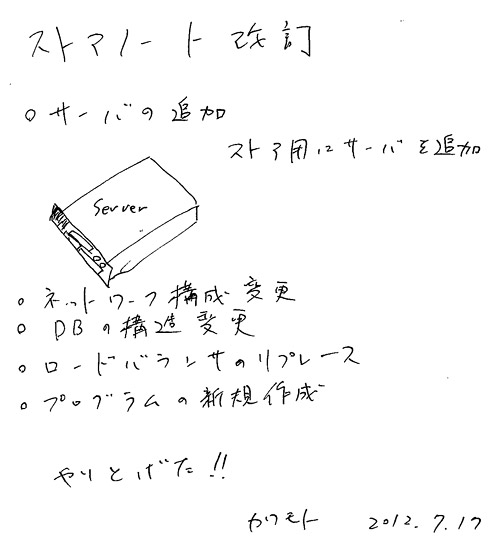 ストアノート 改訂
○ サーバの追加
ストア用にサーバを追加
Server
○ ネットワーク構成変更
○ DBの構造変更
○ ロードバランサのリプレース
○ プログラムの新規作成
やりとげた!!
カワモト 2012.7.17